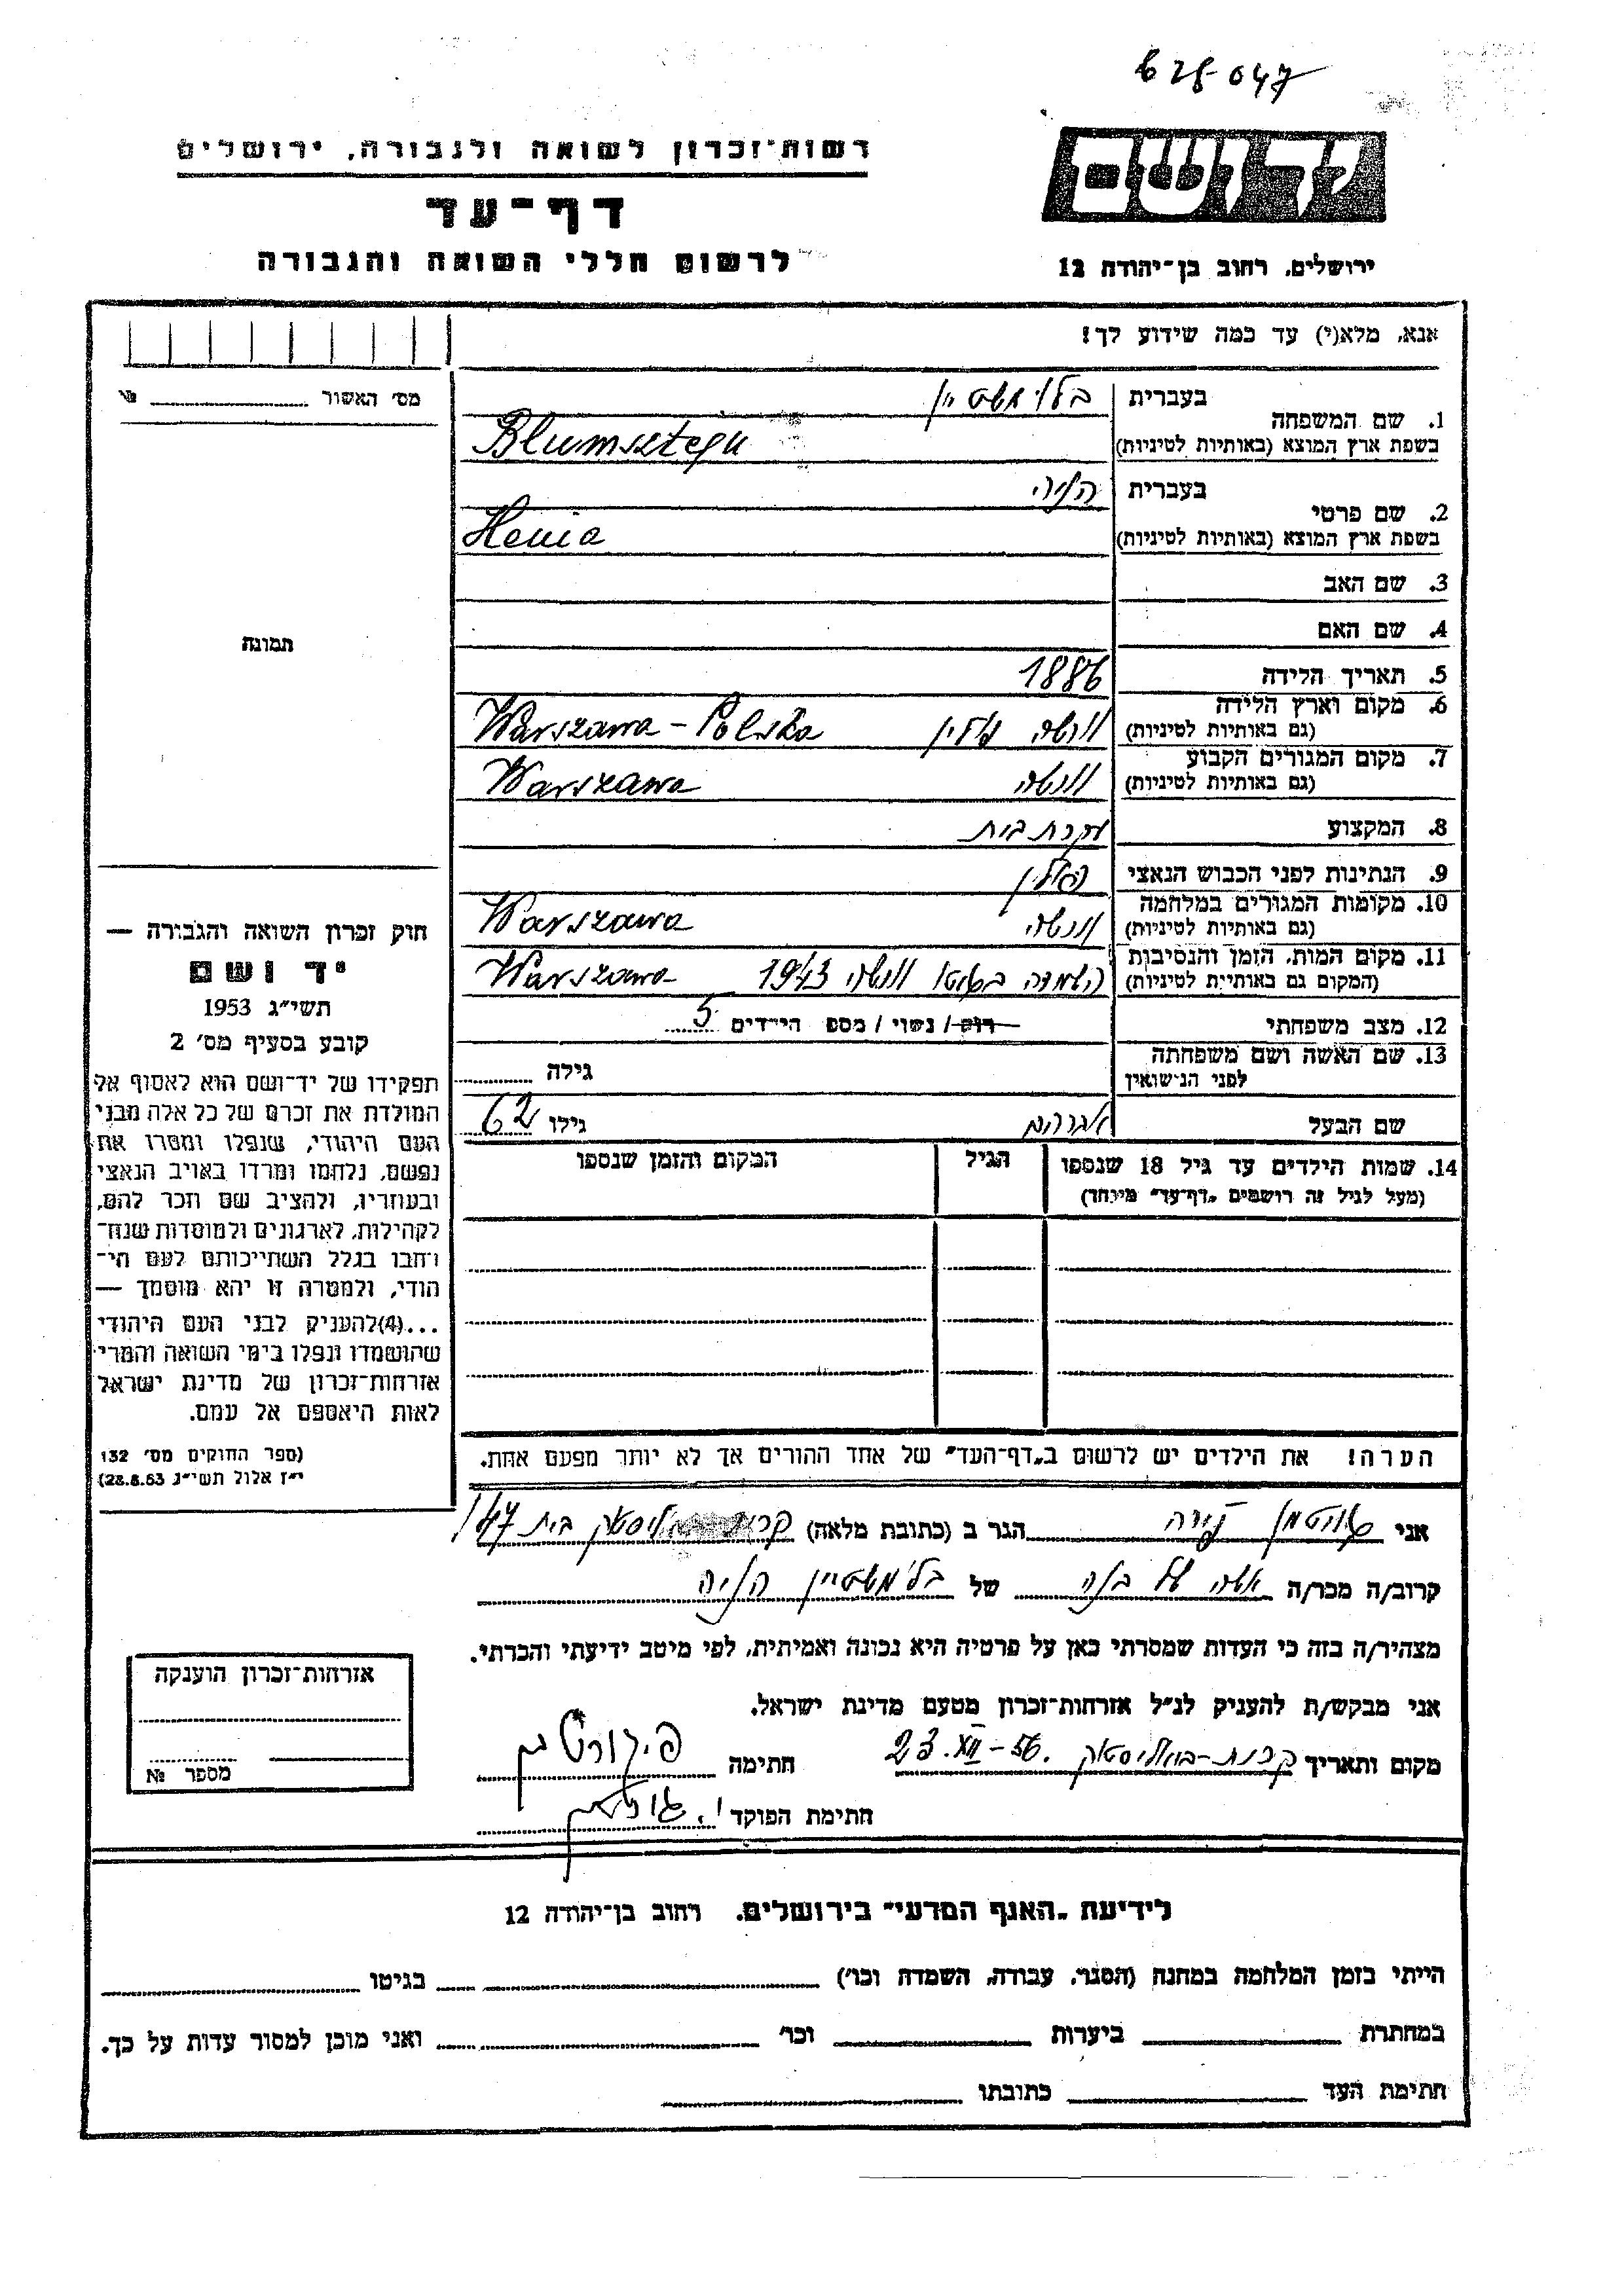 625-047
רשות-זכרון לשואה ולגבורה, ירושלים
דף-עד
לרשום חללי השואה והגבורה
יד ושם
ירושלים, רחוב בן-יהודה 12
אנא, מלא(י) עד כמה שידוע לך!
מס׳ האשור №
1. שם המשפחה
בעברית בלומשטיין
בשפת ארץ המוצא (באותיות לטיניות) Blumsztejn
2. שם פרטי
בעברית הניה
בשפת ארץ המוצא (באותיות לטיניות) Henia
3. שם האב
4. שם האם
תמונה
5. תאריך הלידה 1886
6. מקום וארץ הלידה
(גם באותיות לטיניות) ורשה פולין Warszawa - Polska
7. מקום המגורים הקבוע
(גם באותיות לטיניות) ורשה Warszawa
8. המקצוע עקרת בית
9. הנתינות לפני הכבוש הנאצי פולין
10. מקומות המגורים במלחמה
(גם באותיות לטיניות) ורשה Warszawa
11. מקום המות, הזמן והנסיבות
(המקום גם באותיות לטיניות) השמדה בגטו ורשה 1943 Warszawa
12. מצב משפחתי רוק / נשוי / מספ הילדים 5
13. שם האשה ושם משפחתה
לפני הנישואין גילה
שם הבעל אברהם גילו 62
14. שמות הילדים עד גיל 18 שנספו הגיל המקום והזמן שנספו
(מעל לגיל זה רושמים „דף-עד״ מיוחד)
חוק זכרון השואה והגבורה —
יד ושם
תשי״ג 1953
קובע בסעיף מס׳ 2
תפקידו של יד-ושם הוא לאסוף אל
המולדת את זכרם של כל אלה מבני
העם היהודי, שנפלו ומסרו את
נפשם, נלחמו ומרדו באויב הנאצי
ובעוזריו, ולהציב שם וזכר להם,
לקהילות, לארגונים ולמוסדות שנח-
רבו בגלל השתייכותם לעם הי-
הודי, ולמטרה זו יהא מוסמך —
...(4)להעניק לבני העם היהודי
שהושמדו ונפלו בימי השואה והמרי
אזרחות-זכרון של מדינת ישראל
לאות היאספם אל עמם.
(ספר החוקים מס׳ 132
י״ז אלול תשי״ג 28.8.53)
הערה! את הילדים יש לרשום ב„דף-העד״ של אחד ההורים אך לא יותר מפעם אחת.
אני הגר ב (כתובת מלאה) בית 147
קרוב/ה מכר/ה אשה של בנה של בלומשטיין הניה
מצהיר/ה בזה כי העדות שמסרתי כאן על פרטיה היא נכונה ואמיתית, לפי מיטב ידיעתי והכרתי.
אני מבקש/ת להעניק לנ״ל אזרחות-זכרון מטעם מדינת ישראל.
מקום ותאריך קרית-ביאליסטוק 23.XII-56. חתימה
חתימת הפוקד
אזרחות-זכרון הוענקה
מספר №
לידיעת „האגף המדעי״ בירושלים, רחוב בן-יהודה 12
הייתי בזמן המלחמה במחנה (הסגר, עבודה, השמדה וכו׳) בגיטו
במחתרת ביערות וכו׳ ואני מוכן למסור עדות על כך.
חתימת העד כתובתו